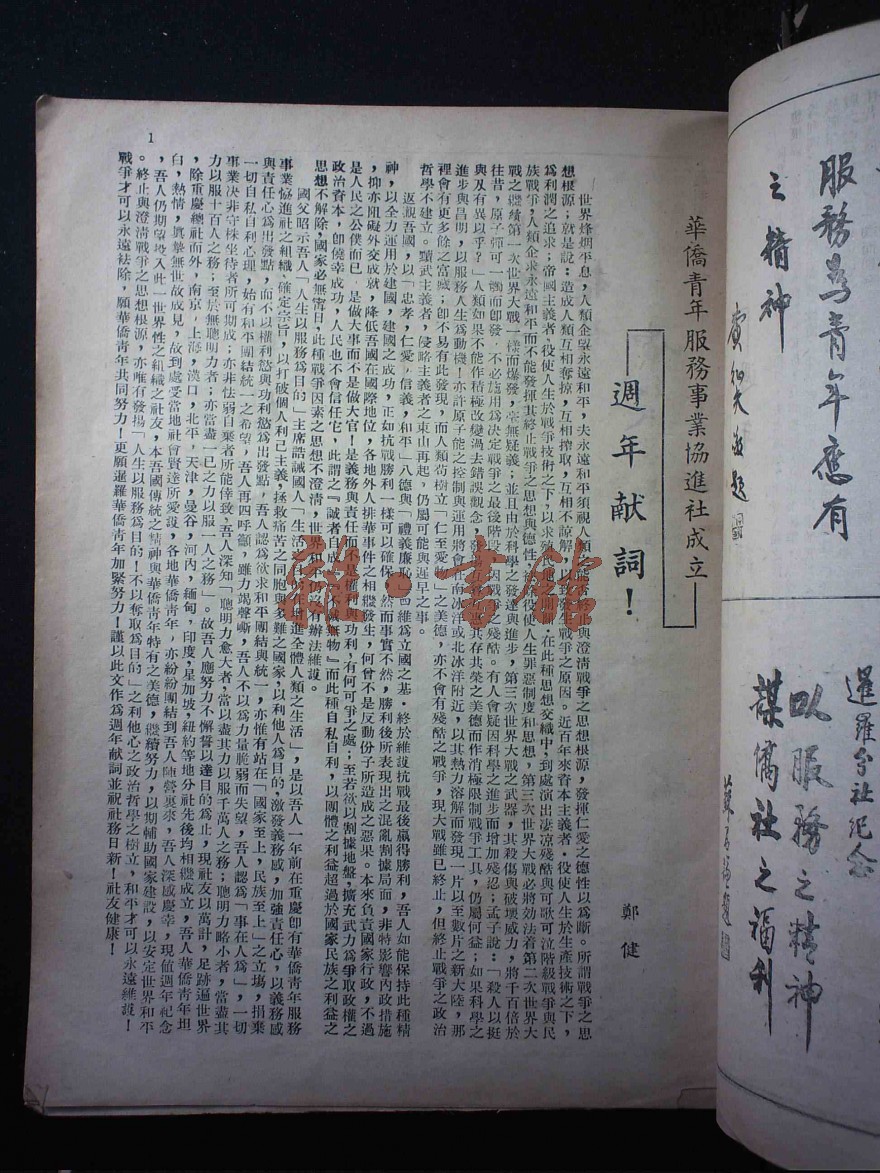 服務為青年應有
之精神
敬題
暹羅分社紀念
以服務之精神
謀僑社之福利
題
華僑青年服務事業協進社成立
週年献詞！
鄭健
世界烽烟平息，人類企望永遠和平，夫永遠和平須視人類之能否終止與澄清戰爭之思想根源，發揮仁愛之德性以為斷。所謂戰爭之思
想根源；就是說：造成人類互相奪掠，互相搾取，互相不諒解，以致發生戰爭之原因。近百年來資本主義者，役使人生於生產技術之下，
為利潤之追求；帝國主義者，役使人生於戰爭技術之下，以求殖民地之開，在此種思想交織中，到處演出淒凉殘酷與可歌可泣階級戰爭與民
族戰爭，人類企求永遠和平而不能發揮其終止戰爭之思想與德性，役使人生罪惡制度和思想，第三次世界大戰必將効法着第二次世界大
戰之繼續第一次世界大戰一樣而爆發，毫無疑義；並且由於科學之發達與進步，第三次世界大戰之武器，其殺傷與破壞威力，將千百倍於
往昔，原子彈可一觸而即發，不必施用為決定戰爭之最後階段，因戰爭之殘酷。有人會疑因科學之進步而增加殘忍；孟子說：「殺人以挺
與及有異以乎？」人類如果不能作積極改變過去錯誤觀念，共存共榮之美德而作消極限制戰爭工具，仍屬何益；如果科學之
進步與昌明，以服務人生為動機！亦許原子能之控制與運用將會在南冰洋或北冰洋附近，以其熱力溶解而發現一片以至數片之新大陸，那
裡會有更多餘之富威；即不易有此發現，而人類苟樹立「仁至愛物」之美德，亦不會有殘酷之戰爭，現大戰雖已終止，但終止戰爭之政治
哲學不建立。黷武主義者，侵略主義者之東山再起，仍屬可能與遲早之事。
返觀吾國，以「忠孝，仁愛，信義，和平」八德與「禮義廉恥」四維為立國之基，終於維護抗戰最後贏得勝利，吾人如能保持此種精
神，以全力運用於建國，建國之成功，正如抗戰勝利一樣可以確保。然而事實不然，勝利後所表現出之混亂割據局面，非特影響內政措施
，抑亦阻礙外交成就，降低吾國在國際地位，各地外人排華事件之相繼發生，何曾不是反動份子所造成之惡果。本來負責國家行政，不過
是人民之公僕而已，是做大事而不是做大官！是義務與責任而不是權利與功利，有何可爭之處；至若欲以割據地盤，擴充武力為爭取政權之
政治資本，即僥幸成功，人民也不會信任它，此謂之『誠者自成，不誠無物』而此種自私自利，以團體之利益超過於國家民族之利益之
思想不解除，國家必無甯日，此種戰爭因素之思想不澄清，世界和平仍沒有辦法維護。
國父昭示吾人「人生以服務為目的」主席誥誡國人「生活之目的在增進全體人類之生活」，是以吾人一年前在重慶即有華僑青年服務
事業協進社之組織，確定宗旨，以打破個人利己主義，拯救痛苦之同胞與多難之國家，以利他人為目的，激發義務感，加強責任心，以義務感
與責任心為出發點，而不以權利慾與功利慾為出發點，吾人認為欲求和平團結與統一，亦惟有站在「國家至上，民族至上」之立場，捐棄
一切自私自利心理，始有和平團結統一之希望，吾人再四呼籲，雖力竭聲嘶，吾人不以為力量脆弱而失望，吾人認為「事在人為」，一切
事業決非守株坐待者所可期成；亦非怯弱自棄者所能倖致，吾人深知「聰明力愈大者，當以盡其力以服千萬人之務；聰明力略小者，當盡其
力以服十百人之務；至於無聰明力者；亦當盡一己之力以服一人之務」。故吾人應努力不懈誓以達目的為止，現社友以萬計，足跡遍世界
，除重慶總社而外，南京，上海，漢口，北平，天津，曼谷，河內，緬甸，印度，星加坡，紐約等地分社先後均相繼成立，吾人華僑青年坦
白，熱情，真摯無世故成見，故到處受當地社會賢達所愛護，各地華僑青年，亦紛紛團結到吾人陣營裏來，吾人深感慶幸，現值週年紀念
，吾人仍期望投入此一世界性之組織之社友，本吾國傳統之精神與華僑青年特有之美德，繼續努力，以期輔助國家建設，以安定世界和平
。終止與澄清戰爭之思想根源，亦唯有發揚「人生以服務為目的！不以奪取為目的」之利他心之政治哲學之樹立，和平才可以永遠維護！
戰爭才可以永遠袪除，願華僑青年共同努力！更願暹羅華僑青年加緊努力！謹以此文作為週年献詞並祝社務日新！社友健康！
1